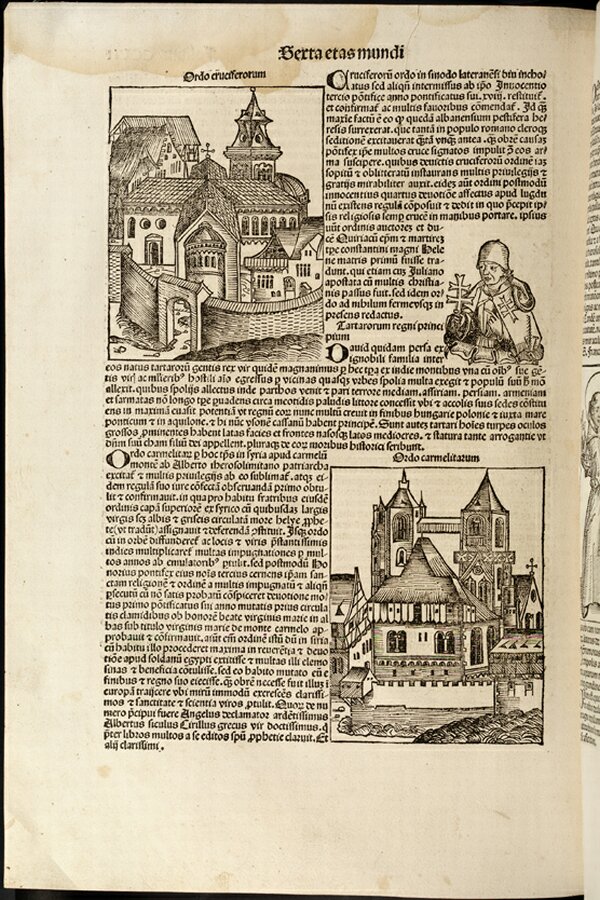 Sexta etas mundi
Ordo cruciferorum
Cruciferorũ ordo in sinodo lateranẽsi diu incho/
atus sed aliqñ intermissus ab ip̃o Innocentio
tercio põtifice anno pontificatus sui .xviij. restituit̃.
et confirmat̃ ac multis fauoribus cõmendat̃. Id q̃
maxie factũ ẽ eo q̃ quedã albanensium pestifera he/
resis surrexerat. que tantã in populo romano cleroq̃
seditionẽ excitauerat q̃ta vnq̃ antea. q̃ obrẽ causaz
põtifex ip̃e multos cruce signatos impulit p̃ eos ar/
ma suscipere. quibus deuictis cruciferorũ ordinẽ iaz
sopitũ & oblitteratũ instaurans multis priuilegijs &
gratijs mirabiliter auxit. eidez aũt ordini postmodũ
innocentius quartus deuotiõe affectus apud lugdũ
nũ existens regulã cõposuit & dedit in quo p̃cepit ip̃i/
sis religiosis semp̃ crucẽ in manibus portare. ipsius
uũt ordinis auctorez et du/
cẽ Quiriacũ ep̃m & martirez
tp̃e constantini magni Hele
ne matris primũ fuisse tra/
dunt. qui etiam cuz Juliano
apostata cũ multis christia/
nis passus fuit. sed idem or/
do ad nibilum fermeysq̃ in
presens redactus.
Tartarorum regni princi
pium
Dauid quidam persa ex
ignobili familia inter
eos natus tartarorũ gentis rex vir quidẽ magnanimus
allexit. quibus spolijs allectus inde parthos venit & pari terrore mediam. assiriam. persiam. armeniam
et sarmatas nõ longo tp̃e euadens circa meotidis paludis littore concessit vbi & accolis suis sedes cõstitu
ens in maximã euasit potentiã vt regnũ eor̃ nunc multũ creuit in finibus hungarie polonie & iuxta mare
ponticum & in aquilone. & hi nũc ysonẽ cassanũ habent principẽ. Sunt autẽ tartari hoĩes turpes oculos
grossos p̃minentes habent latas facies et frontes nasosq̃ latos mediocres. & statura tante arrogantie vt
dñm suũ cham filiũ dei appellent. pluraq̃ de eor̃ moribus historici scribunt.
Ordo carmelitarum
Ordo carmelitar̃ p̃ hoc tp̃s in syria apud carmelũ
montẽ ab Alberto iherosolimitano patriarcha
excitat̃ & multis priuilegijs ab eo sublimat̃. atq̃ ei/
dem regulã suo iure cõfectã obseruandã primo obtu/
lit & confirmauit. in qua pro habitu fratribus eiusdẽ
ordinis capã superiorẽ ex syrico cũ quibusdaz largis
virgis scz albis & griseis circulatã more helye p̃phe/
te (vt tradũt) assignauit & deferendã p̃stituit. Isq̃ ordo
cũ in orbẽ diffunderet̃ ac locis & viris p̃stantissimis
indies multiplicaret̃ multas impugnationes p̃ mul/
tos annos ab emulatorib⁹ p̃tulit. sed postmodũ Ho
norius pontifex eius nois tercius cernens ip̃am san/
ctam religionẽ & ordinẽ a multis impugnatũ & aliqñ
p̃secutũ cũ nõ satis probatũ cõspiceret deuotione mo/
tus primo põtificatus sui anno mutatis prius circula
tis clamidibus ob honorẽ beate virginis marie in al/
bas sub titulo virginis marie de monte carmelo ap/
probauit & cõfirmauit. aiũt em̃ ordinẽ istũ dũ in siria
cũ habitu illo procederet maxima in reuerẽtia & deuo
tiõe apud soldanũ egypti extitisse & multas illi elemo
sinas & beneficia cõtulisse. sed eo habitu mutato eũ e
finibus & regno suo eiecisse. q̃ obrẽ necesse fuit illuz ĩ
europã traijcere vbi mirũ immodũ excrescẽs clarissi/
mos & sanctitate & scientia viros p̃tulit. Quor̃ de nu
mero p̃cipui fuere Angelus declamator ardẽtissimus
Albertus siculus Cirillus grecus vir doctissimus. q̃
p̃ter libros multos a se editos sp̃u p̃phetie claruit. Et
alij clarissimi.